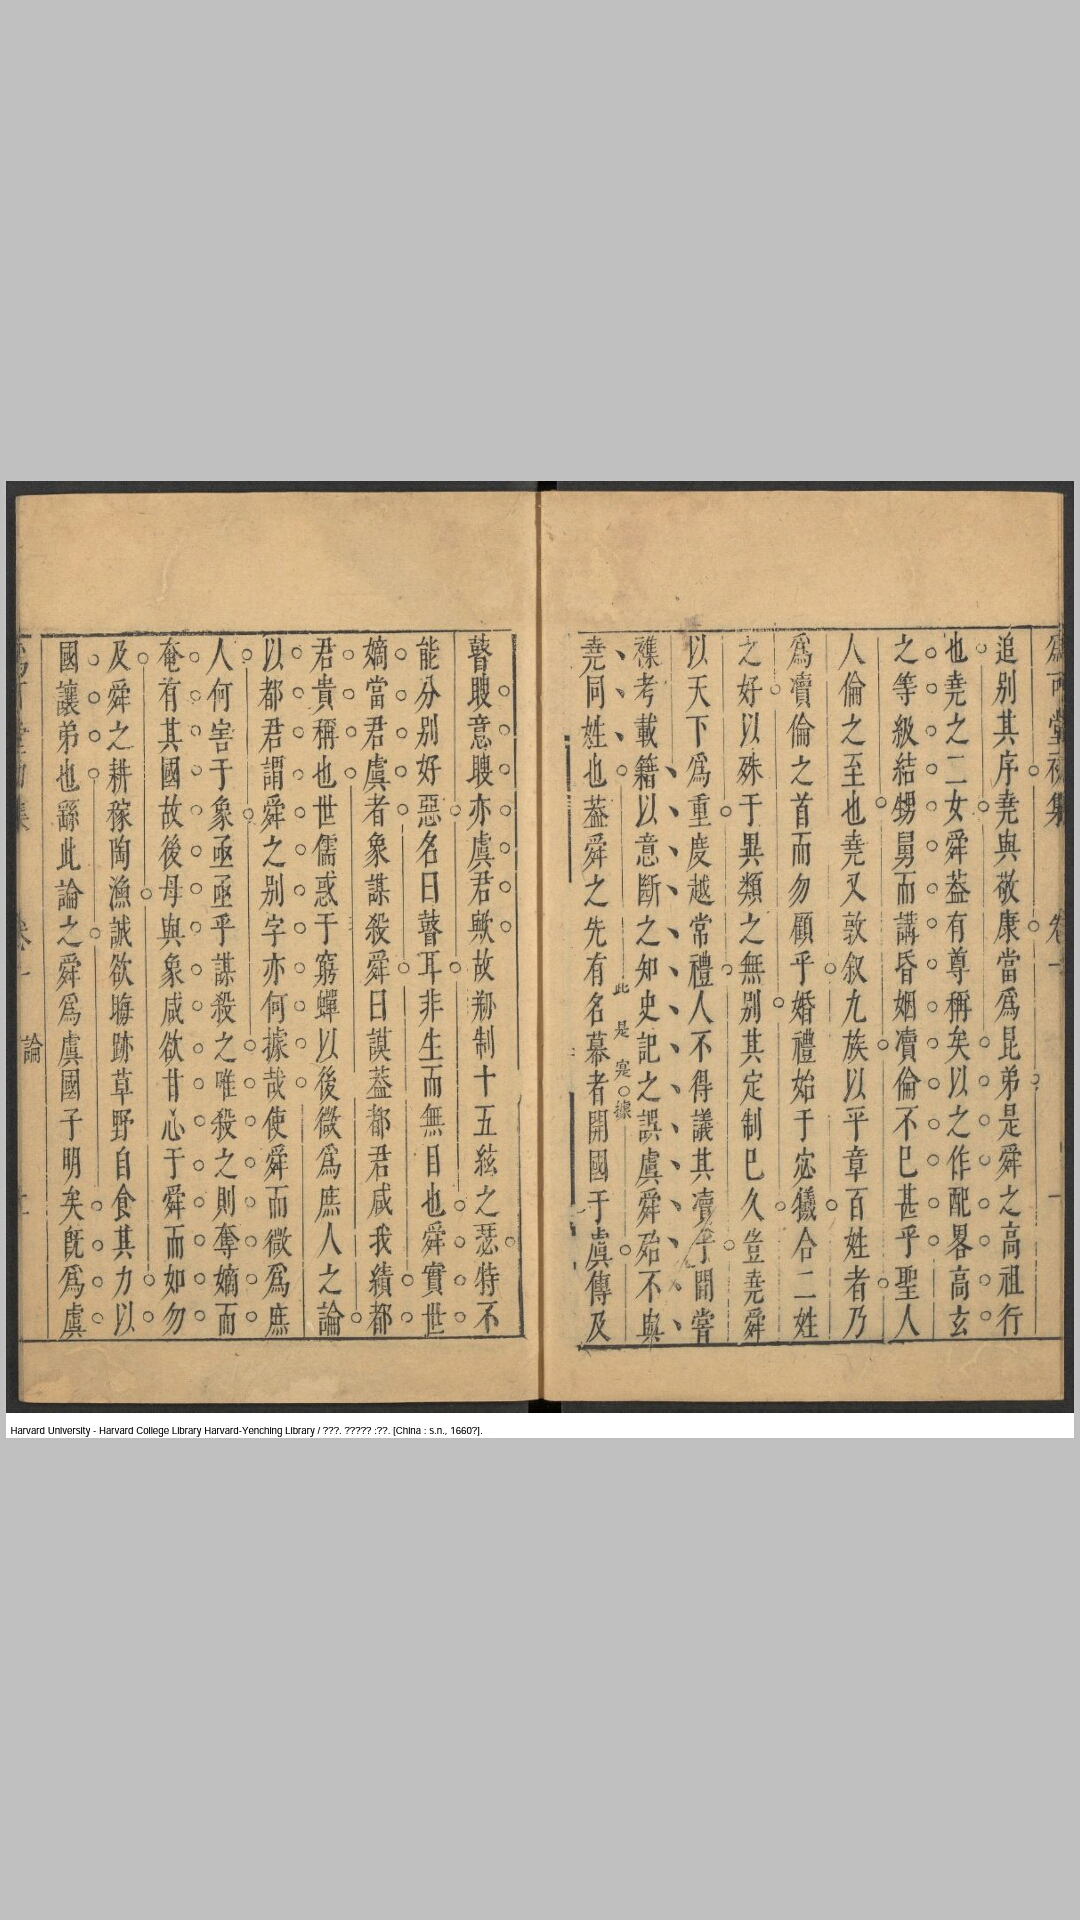 追别其序堯與敬康當爲昆弟是舜之高祖行
也堯之二女舜葢有尊稱矣以之作配畧高玄
之等級結甥舅而講昏姻瀆倫不巳甚乎聖人
人倫之至也堯又敦叙九族以平章百姓者乃
爲瀆倫之首而勿顧乎婚禮始于宓犧合二姓
之好以殊于異類之無别其定制巳久豈堯舜
以天下爲重度越常禮人不得議其瀆乎間嘗
襍考載籍以意斷之知史記之誤虞舜殆不與
此是寔據
堯同姓也葢舜之先有名幕者開國于虞傳及
瞽瞍意瞍亦虞君歟故郷制十五絃之瑟特不
能分别好惡名曰瞽耳非生而無目也舜實世
嫡當君虞者象謀殺舜曰謨葢都君咸我績都
君貴稱也世儒惑于窮蟬以後微爲庶人之論
以都君謂舜之别字亦何據哉使舜而微爲庶
人何害于象亟亟乎謀殺之唯殺之則奪嫡而
奄有其國故後母與象咸欲甘心于舜而如勿
及舜之耕稼陶漁誠欲晦跡草野自食其力以
國讓弟也繇此論之舜爲虞國子明矣旣爲虞
論
Harvard University - Harvard College Library Harvard-Yenching Library / ???. ????? :??. [China : s.n., 1660?].